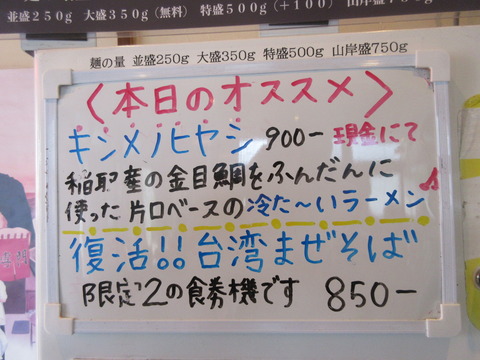 並盛250g 大盛350g(無料) 特盛500g(+100)
麺の量 並盛250g 大盛350g 特盛500g 山岸盛750g
〈本日のオススメ〉
キンメノヒヤシ 900ー 現金にて
稲取産の金目鯛をふんだんに
使った片口ベースの冷た～いラーメン♪
復活!!台湾まぜそば
限定2の食券機です 850ー